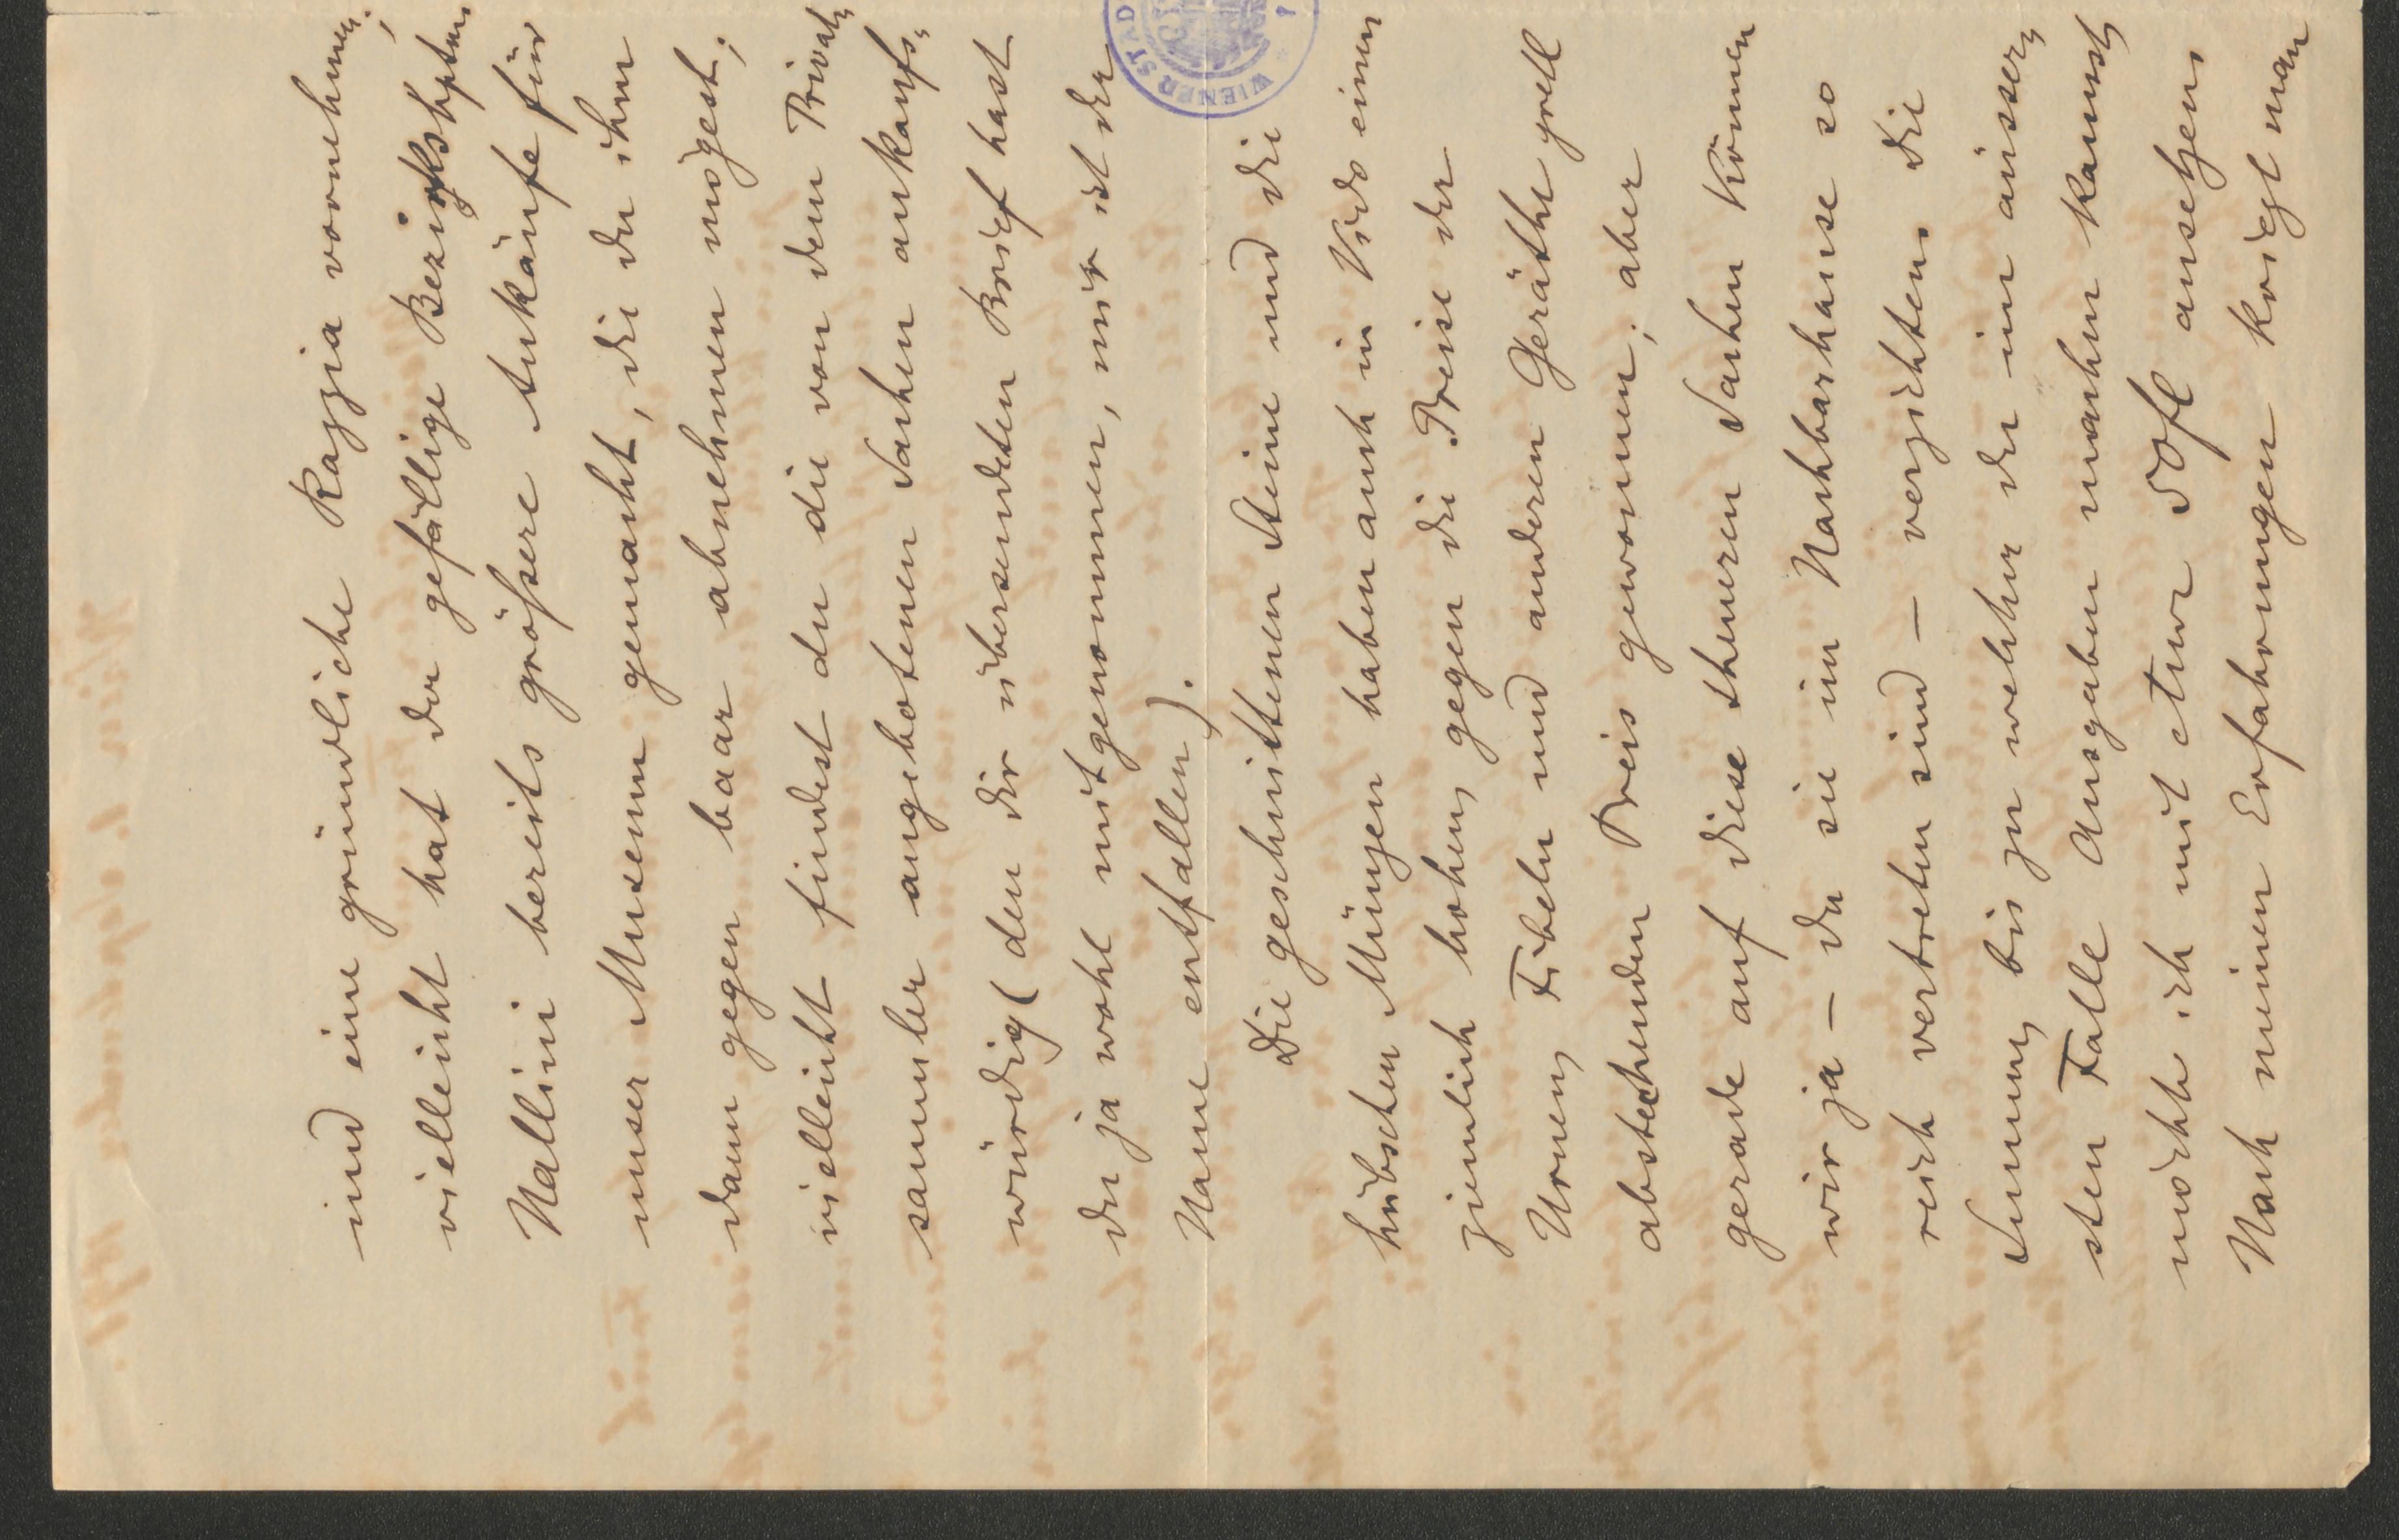 und eine gründliche Razzia vornehmen;
vielleicht hat der gefällige Bezirkshptm
Nallini bereits größere Ankäufe für
unser Museum gemacht, die du ihm
dann gegen baar abnehmen mögest;
vielleicht findest du die von dem Privat-
sammler angebotenen Sachen ankaufs-
würdig (den dir übersendeten Brief hast
du ja wohl mitgenommen, mir ist der
Name entfallen).
Die geschnittenen Steine und die
hübschen Münzen haben auch in Vido einen
ziemlich hohen, gegen die Preise der
Urnen, Fibeln und anderen Geräthe grell
abstechenden Preis gewonnen; aber
gerade auf diese theuren Sachen können
wir ja – da sie im Nachbarhause so
reich vertreten sind – verzichten. Die
Summe, bis zu welcher du im äusser-
sten Falle Ausgaben machen kannst,
möchte ich mit etwa 50fl ansetzen.
Nach meinen Erfahrungen kriegt man
WIENER STAD